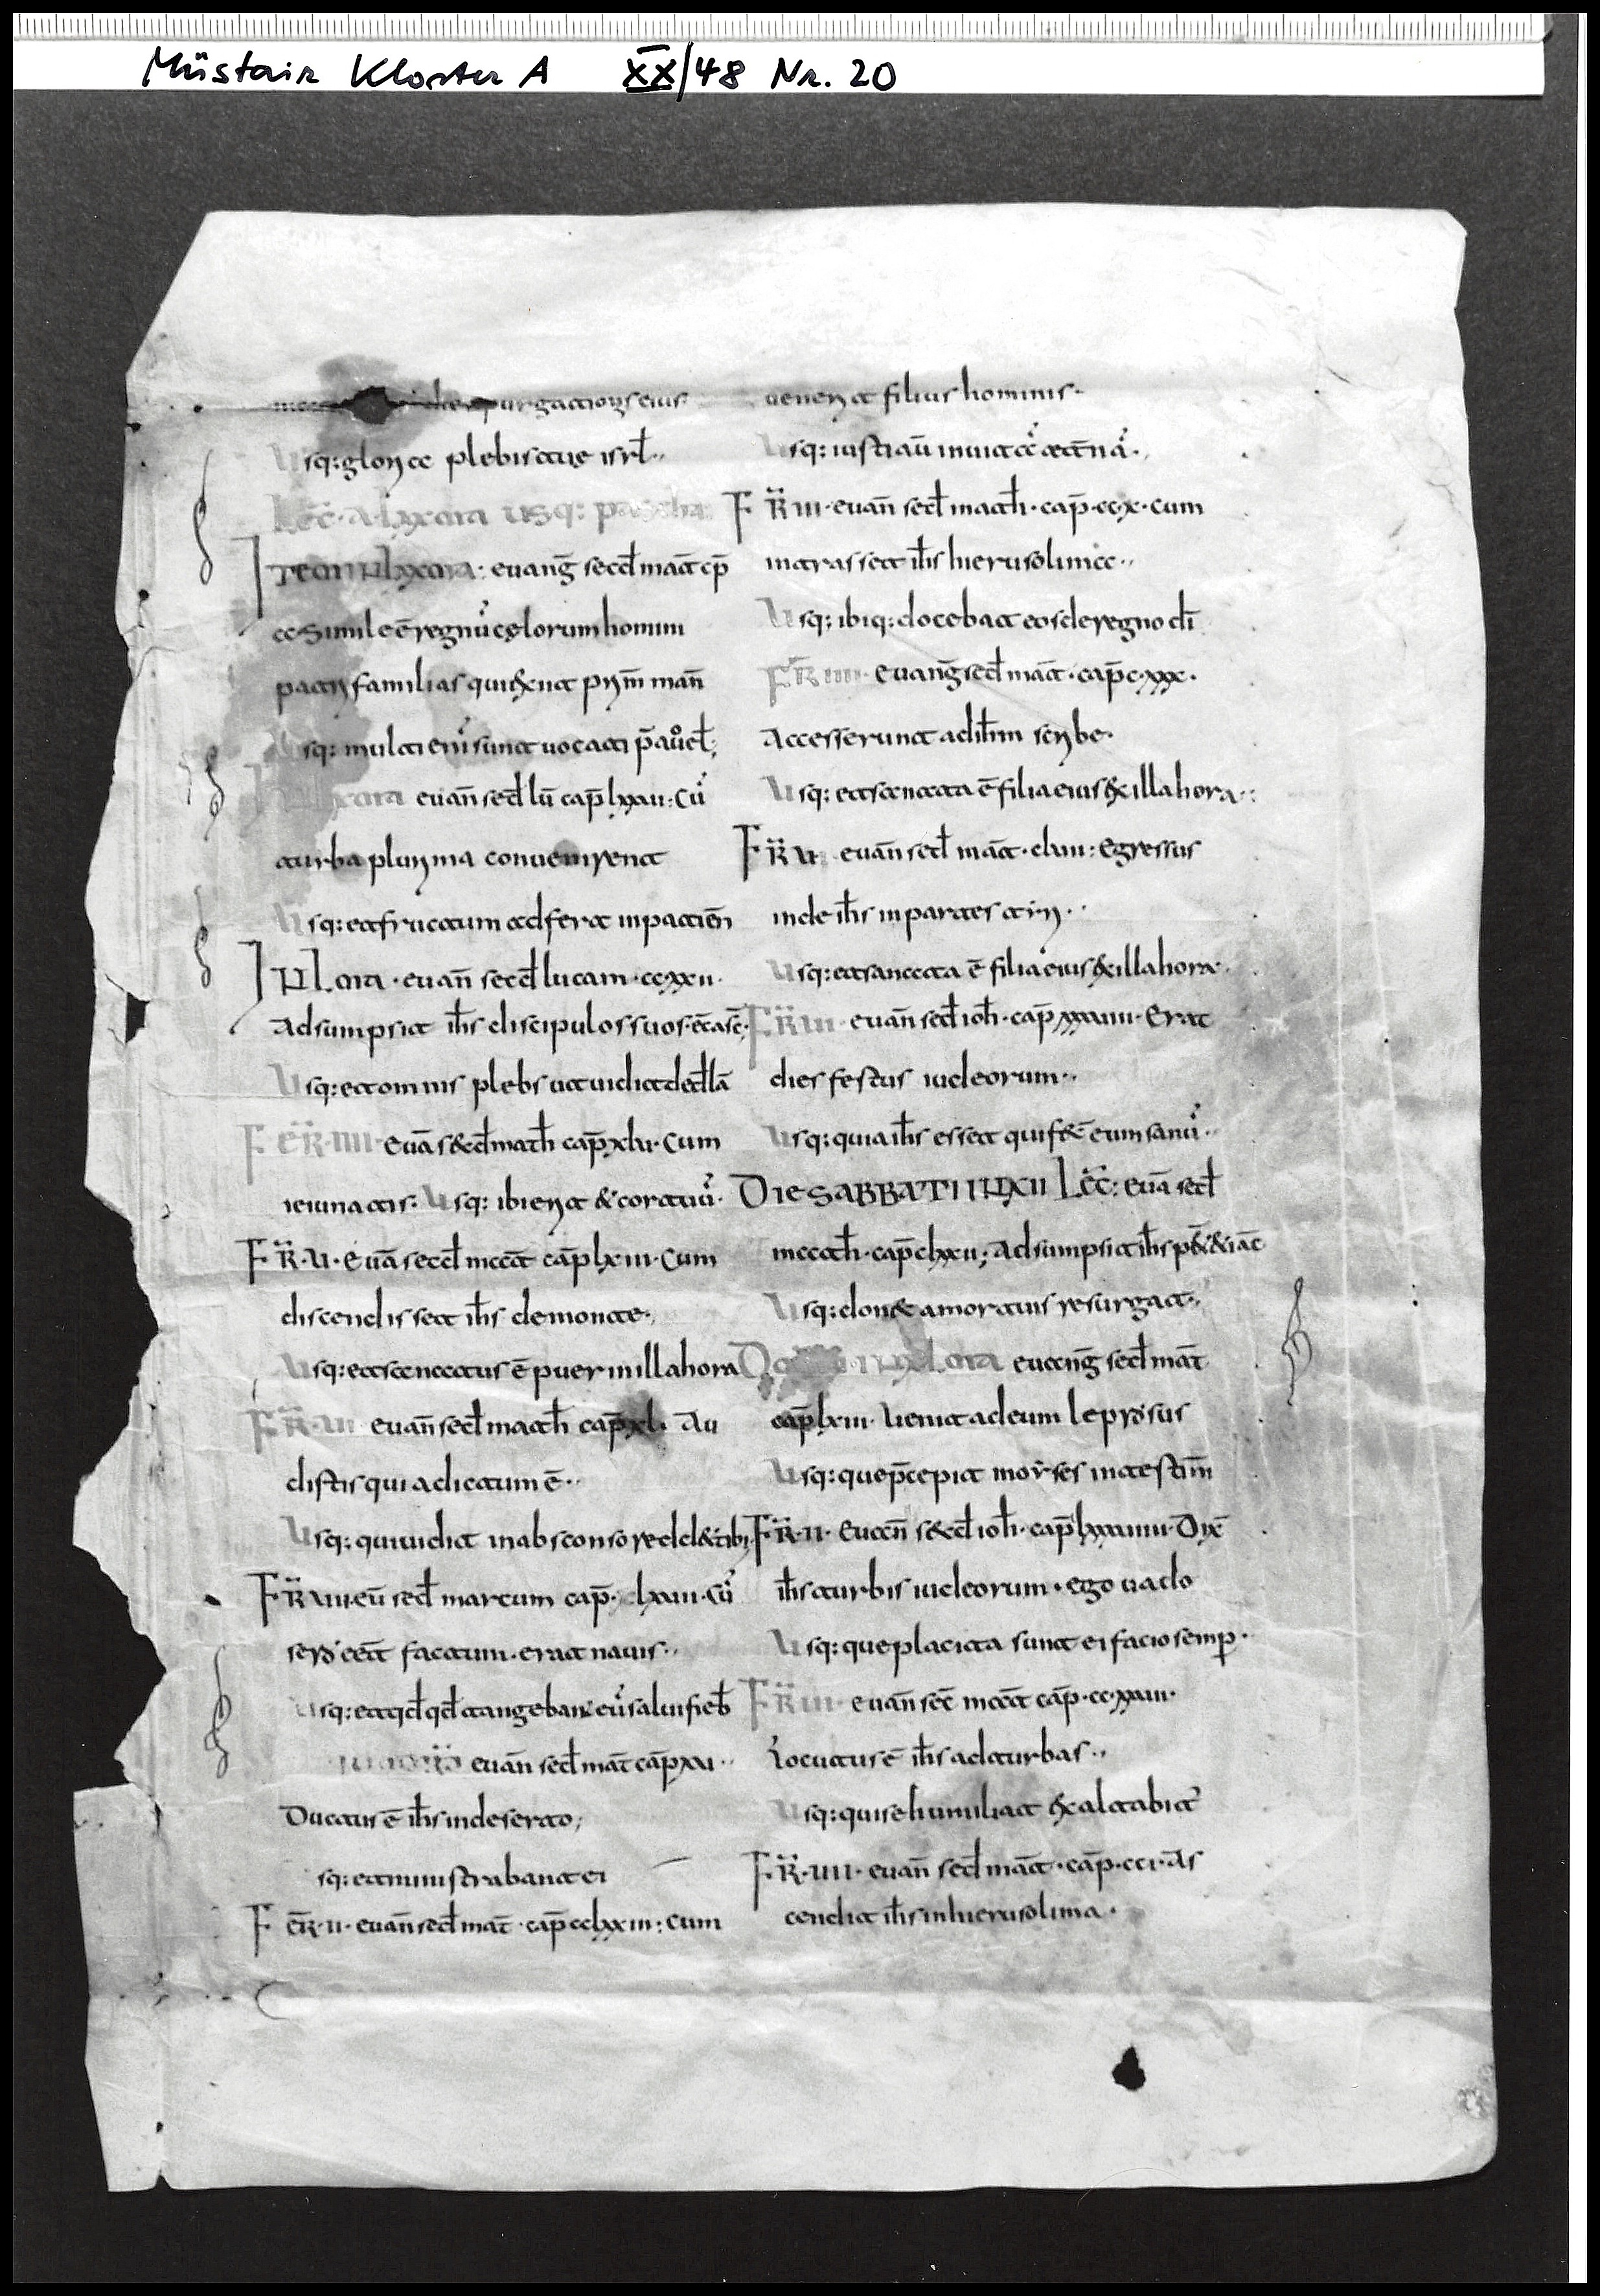 Müstair Kloster A XX/48 Nr. 20
die purgationis eius
Usq: gloria plebis tue isrl̄
Lec̄ A lxxma usq: pascha
IN lxxma: evang̅ secd̄ mat̄ cp̄
cc Simile ē regnū cęlorum homini
patri familias qui exiit prim̄ man̄
Usq: multi enī sunt vocati p̄au v̊ el̄;
lxma euan̄ secd̄ lū cap̄ lxxvi: Cū
turba plurima convenirent
Usq: et fructum adferat in patien̄
IN Lma · euan̄ secd̄ lucam · ccxxii ·
Adsumpsit ih̄s discipulos suos · et asc̄
Usq: et omnis plebs ut vidit ded̄ lā
FER̄ · IIII · Euā secd̄ math̄ cap̄ xlv · Cum
ieiunatis · Usq: ibi erit & cor tuū ·
FR̄ · V · Euā secd̄ mat̄ cap̄ lxiii · Cum
discendisset ih̄s de monte ·
Usq: et sanatus ē puer in illa hora
FR̄ · VI euan̄ secd̄ math̄ cap̄ xl · Au
distis quia dictum ē ··
Usq: qui vidit in absconso redd& tibi
FR̄ VII · eū secd̄ marcum cap̄ · lxvii · Cū
sero eēt factum · erat navis ··
Usq: et qd̄ qd̄ tangebant eū salvi fieb̄
euan̄ secd̄ mat̄ cap̄ xvi ··
Ductus ē ih̄s in deserto;
sq: et ministrabant ei
FER̄ · II · euan̄ secd̄ mat̄ · cap̄ cclxxiii: Cum
venerit filius hominis ·
Usq: iusti aū in vitā etnā ·
FR̄ III · euan̄ secd̄ math̄ · cap̄ · ccx · Cum
intrasset ih̄s hierusolima ··
Usq: ibiq: docebat eos de regno dī
FR̄ IIII · Evang̅ secd̄ mat̄ · cap̄ cxxx ·
Accesserunt ad ih̄m scribe ·
Usq: et sanata ē filia eius ex illa hora ··
FR̄ V euan̄ secd̄ mat̄ · clvii: Egressus
inde ih̄s in partes tiri ··
Usq: et sanata ē filia eius ex illa hora ·
FR̄ VI · euan̄ secd̄ ioh̄ · cap̄ xxxviii · Erat
dies festus iudeorum ··
Usq: quia ih̄s esset qui fec̄ eum sanū ··
DIE SABBATI IN XII Lec̄: Euā secd̄
math̄ · cap̄ clxxii; Adsumpsit ih̄s p& & iac̄
Usq: donec a mortuis resurgat ·
IN xlma euang̅ secd̄ mat̄
cap̄ lxiii · Venit ad eum leprosus
Usq: que p̄cepit moyses in testim̄
FR̄ · II · Euan̄ secd̄ ioh̄ · cap̄ lxxxviiii · Dix̄
ih̄s turbis iudeorum · ego vado
Usq: que placita sunt ei facio semp̄ ·
FR̄ III · euan̄ sec̄ mat̄ cap̄ · ccxxviii ·
Locutus ē ih̄s ad turbas ··
Usq: qui se humiliat exaltabit̄
FR̄ · IIII · euan̄ secd̄ mat̄ · cap̄ · cci · As
cendit ih̄s in hierusolima ·